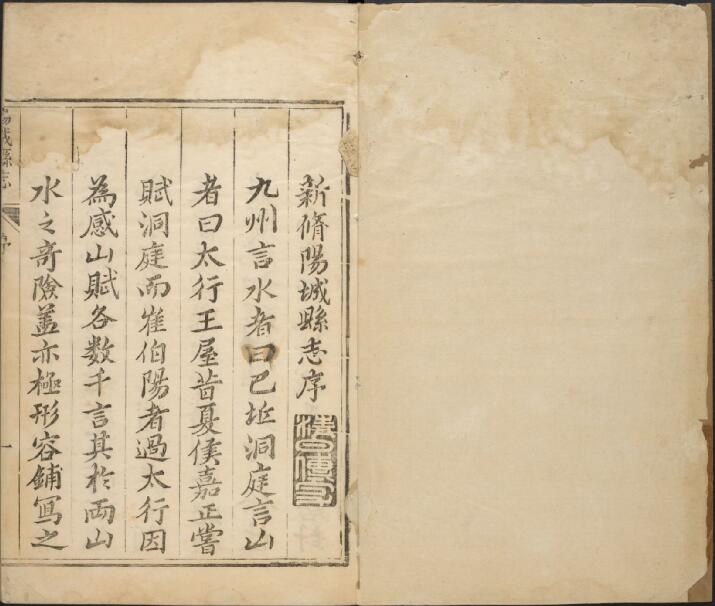 新脩陽城縣志序
九州言水者曰巴丘洞庭言山
者曰太行王屋昔夏侯嘉正嘗
賦洞庭而崔伯陽者過太行因
為感山賦各数千言其於兩山
水之奇險蓋亦極形容鋪寫之
陽城縣志
序
一